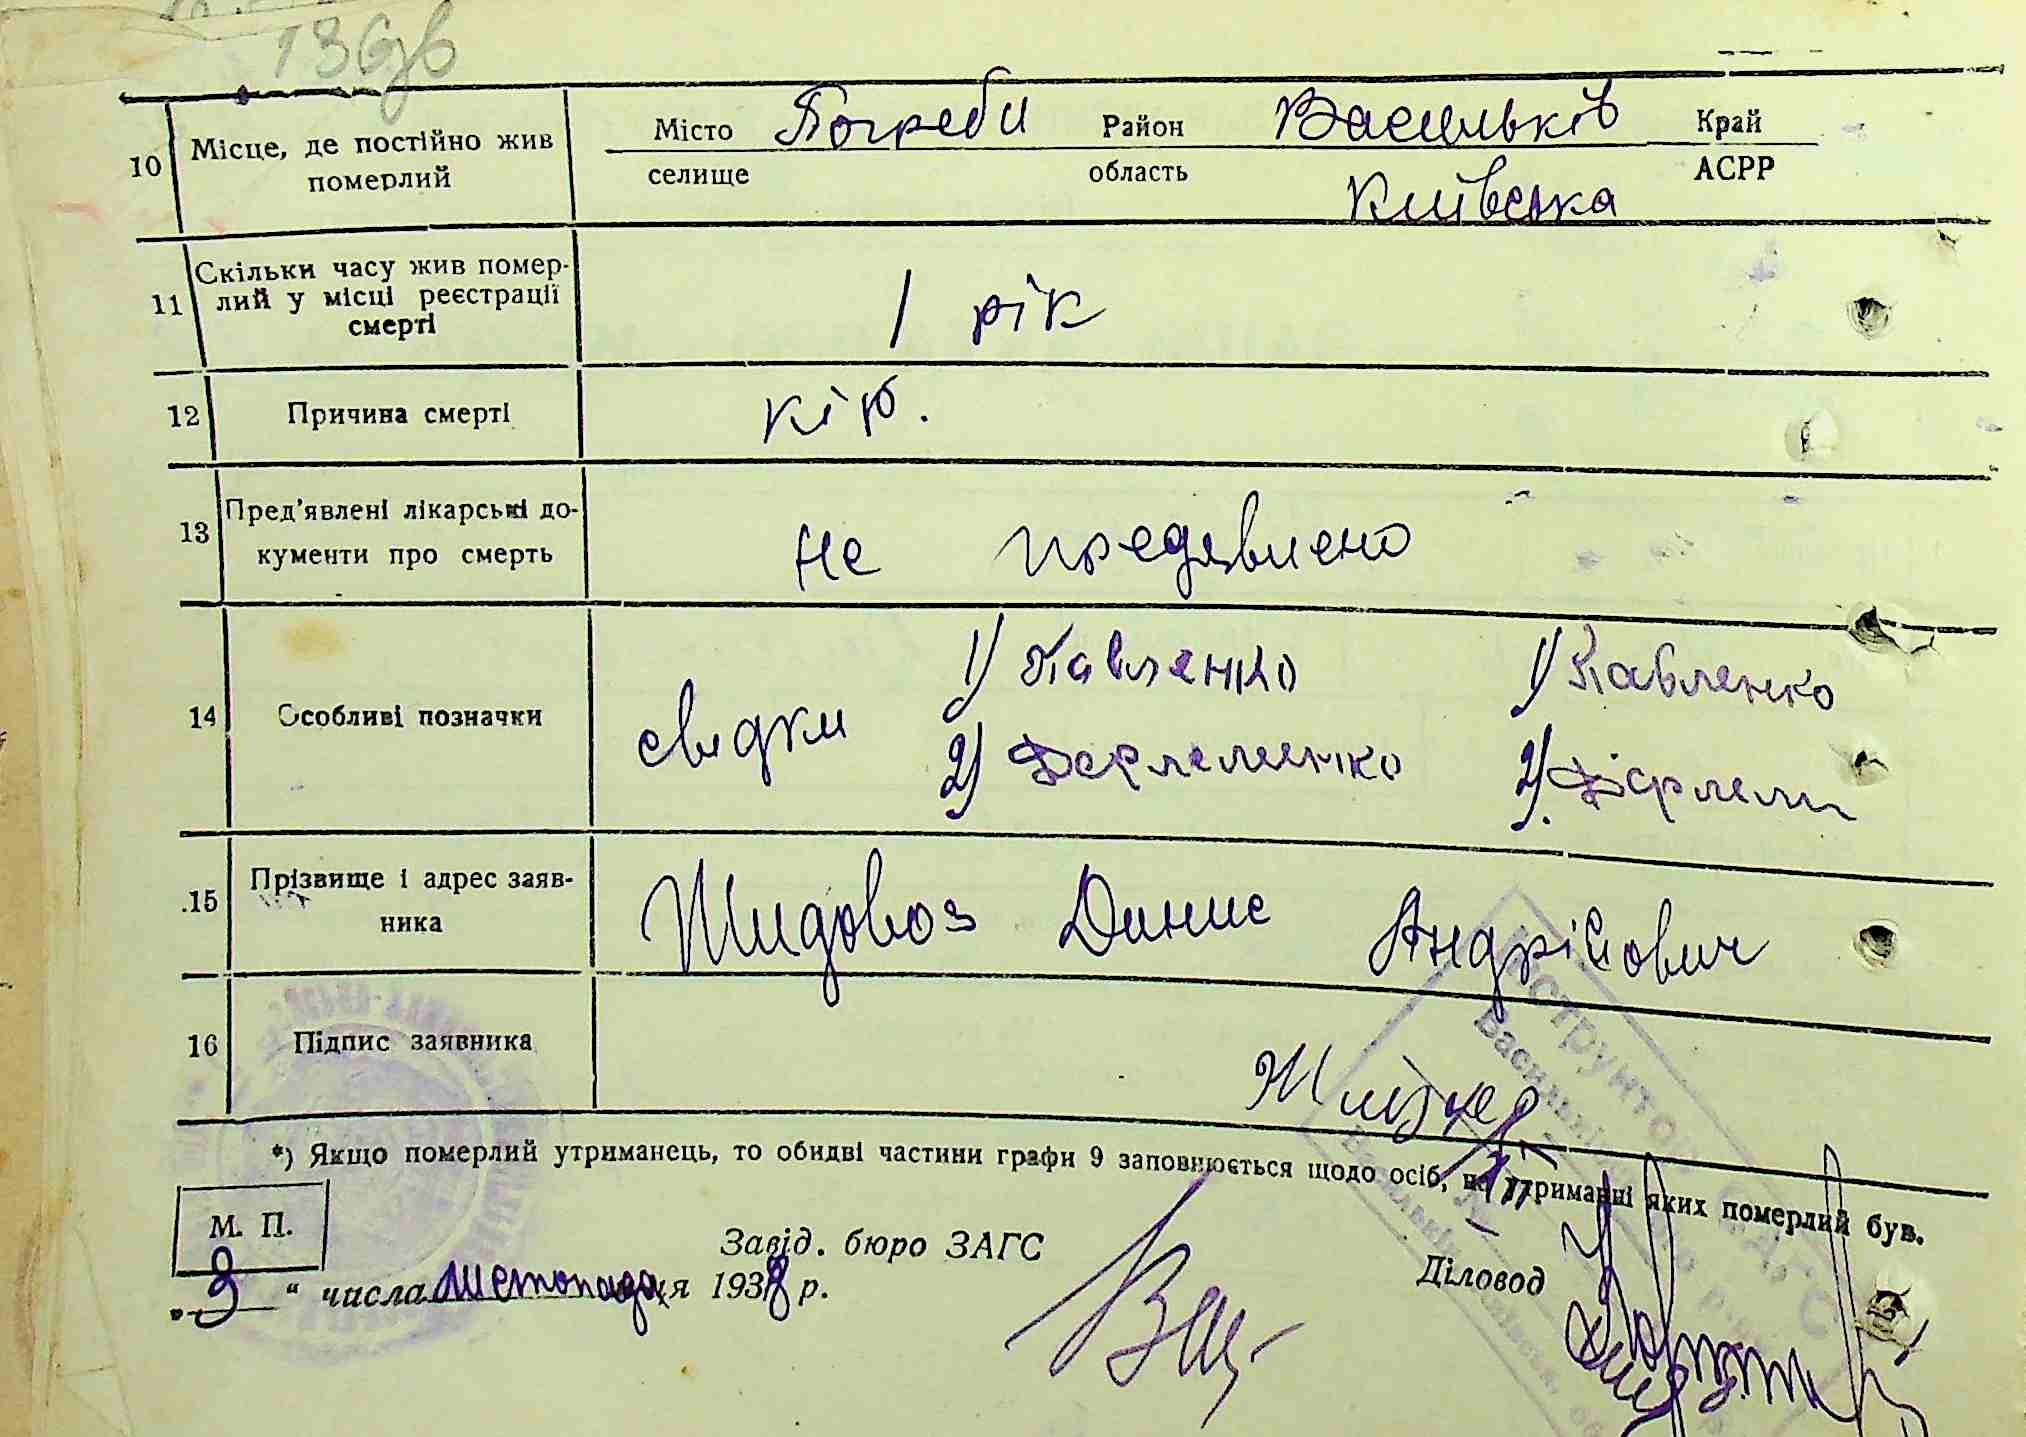 136зв
10 Місце, де постійно жив померлий
Місто Погреби Район Васильків Край
селище область Київська АСРР
11 Скільки часу жив помер-
лий у місці реєстрації
смерті
1 рік
12 Причина смерті кір.
13 Пред'явлені лікарські до-
кументи про смерть
не предявлено
14 Особливі позначки свідки
1) Павленко 1) Павленко
2) 2)
15 Прізвище і адрес заяв-
ника
Жидовоз Динис Андрійович
16 Підпис заявника
*) Якщо померлий утриманець, то обидві частини графи 9 заповнюється щодо осіб, на утриманні яких померлий був.
М. П.
Завід. бюро ЗАГС
Діловод
„ 3 “ числа листопада ця 1938 р.
Інструктор ЗАГС